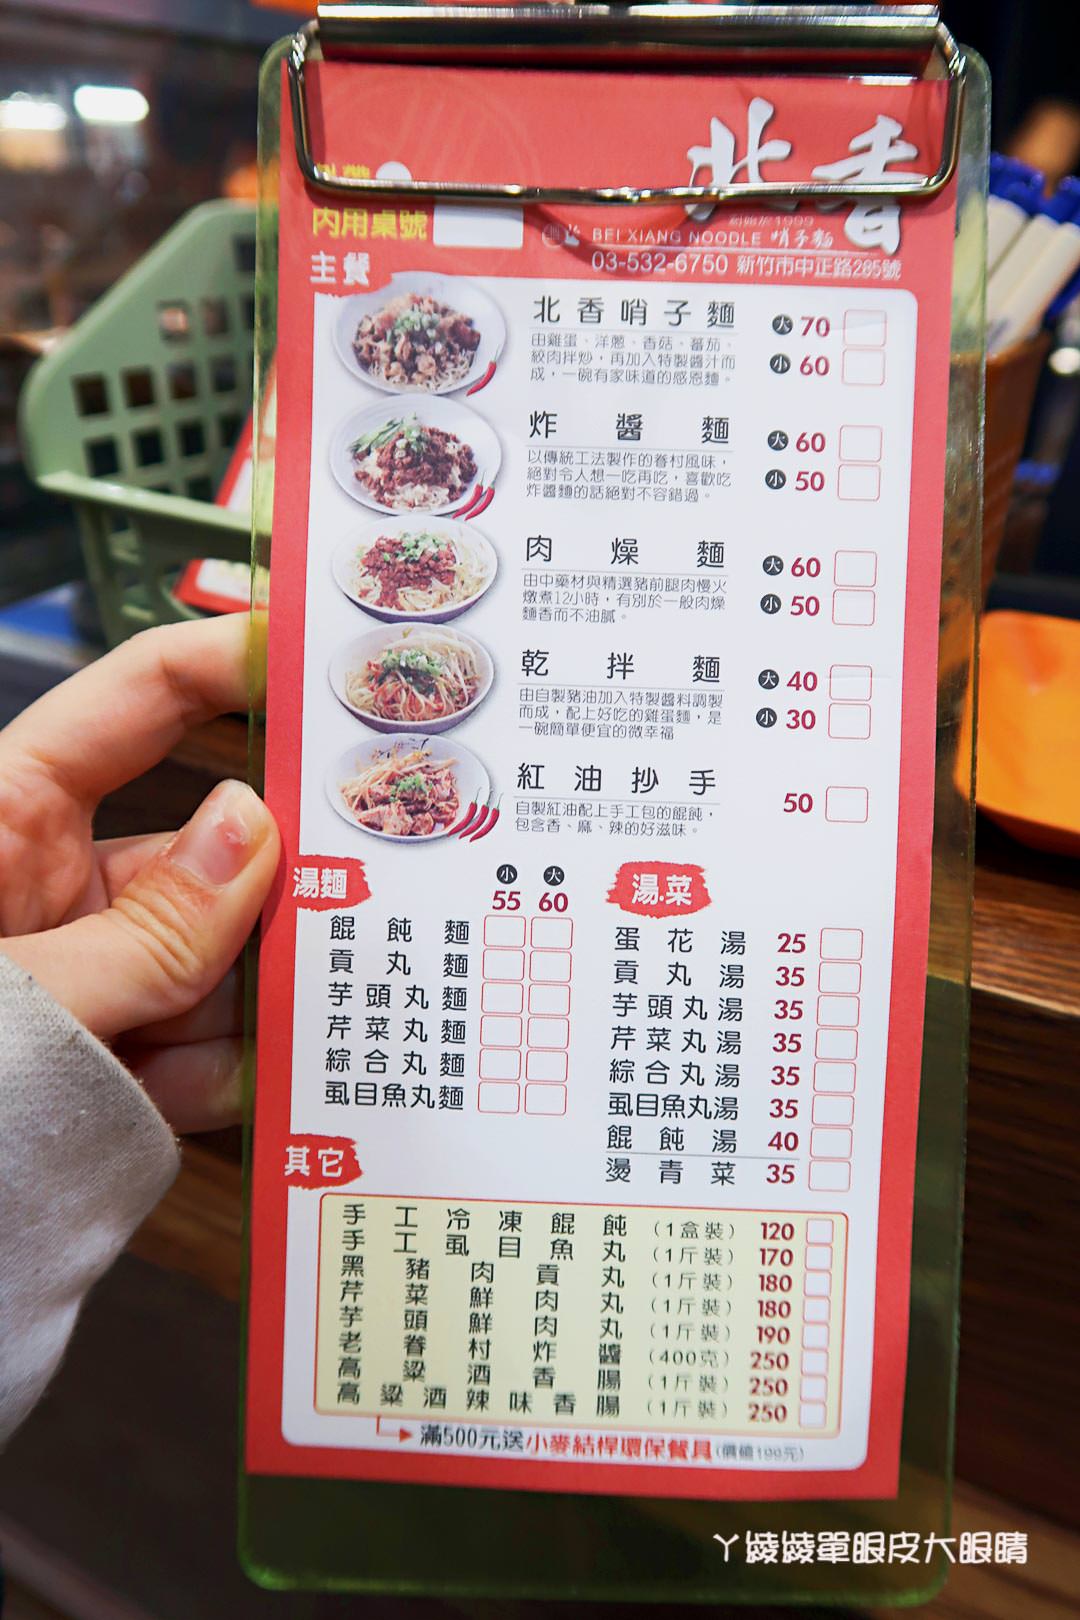 北香
創始於1999
內用桌號
BEI XIANG NOODLE 哨子麵
03-532-6750 新竹市中正路285號
主餐
北香哨子麵
由雞蛋、洋蔥、香菇、蕃茄、
絞肉拌炒，再加入特製醬汁而
成，一碗有家味道的感恩麵。
大 70
小 60
炸醬麵
以傳統工法製作的眷村風味，
絕對令人想一吃再吃，喜歡吃
炸醬麵的話絕對不容錯過。
大 60
小 50
肉燥麵
由中藥材與精選豬前腿肉慢火
燉煮12小時，有別於一般肉燥
麵香而不油膩。
大 60
小 50
乾拌麵
由自製豬油加入特製醬料調製
而成，配上好吃的雞蛋麵，是
一碗簡單便宜的微幸福
大 40
小 30
紅油抄手
自製紅油配上手工包的餛飩，
包含香、麻、辣的好滋味。
50
湯麵
小 大
55 60
餛飩麵
貢丸麵
芋頭丸麵
芹菜丸麵
綜合丸麵
虱目魚丸麵
湯.菜
蛋花湯 25
貢丸湯 35
芋頭丸湯 35
芹菜丸湯 35
綜合丸湯 35
虱目魚丸湯 35
餛飩湯 40
燙青菜 35
其它
手工冷凍餛飩（1盒裝）120
手工虱目魚丸（1斤裝）170
黑豬肉貢丸（1斤裝）180
芹菜鮮肉丸（1斤裝）180
芋頭鮮肉丸（1斤裝）190
老眷村炸醬（400克）250
高粱酒香腸（1斤裝）250
高粱酒辣味香腸（1斤裝）250
滿500元送小麥結桿環保餐具(價值199元)
ㄚ綾綾單眼皮大眼睛